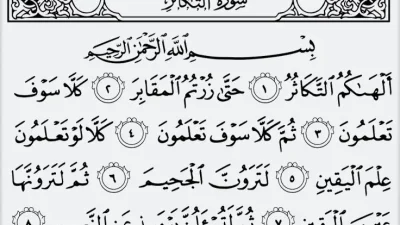 سُورَةُ التَّكَاثُرِ
بِسْمِ ٱللَّهِ ٱلرَّحْمَٰنِ ٱلرَّحِيمِ
أَلْهَىٰكُمُ ٱلتَّكَاثُرُ ١ حَتَّىٰ زُرْتُمُ ٱلْمَقَابِرَ ٢ كَلَّا سَوْفَ
تَعْلَمُونَ ٣ ثُمَّ كَلَّا سَوْفَ تَعْلَمُونَ ٤ كَلَّا لَوْ تَعْلَمُونَ
عِلْمَ ٱلْيَقِينِ ٥ لَتَرَوُنَّ ٱلْجَحِيمَ ٦ ثُمَّ لَتَرَوُنَّهَا
عَيْنَ ٱلْيَقِينِ ٧ ثُمَّ لَتُسْـَٔلُنَّ يَوْمَئِذٍ عَنِ ٱلنَّعِيمِ ٨